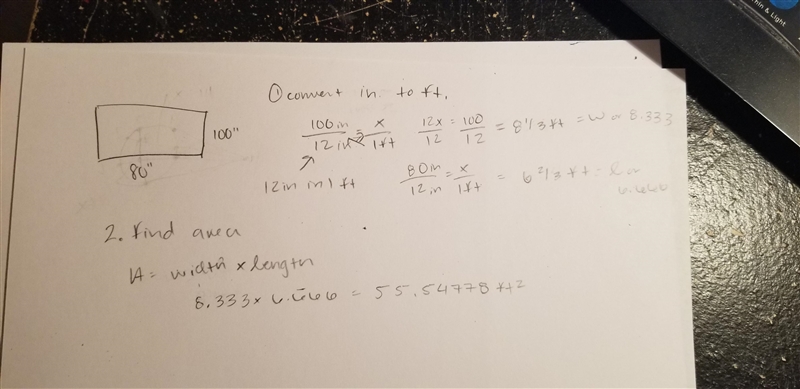 ① convert in. to ft.
100"
80"
100 in / 12 in = x / 1 ft
12x / 12 = 100 / 12 = 8 1/3 ft = w or 8.333
12 in in 1 ft
80 in / 12 in = x / 1 ft = 6 2/3 ft = l or 6.666
2. Find area
A = width x length
8.333 x 6.666 = 55.54778 ft2
hin & Light